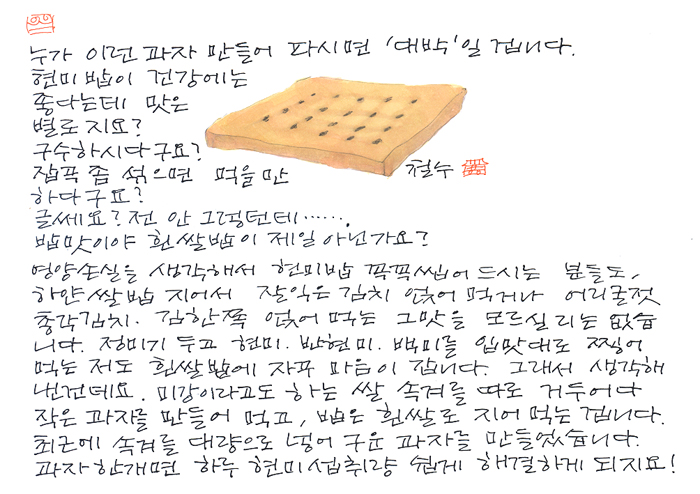 누가 이런 과자 만들어 파시면 '대박'일 겁니다.
현미밥이 건강에는
좋다는데 맛은
별로지요?
구수하시다구요?
잡곡 좀 섞으면 먹을만
하다구요?
글쎄요? 전 안 그렇던데…….
밥맛이야 흰쌀밥이 제일 아닌가요?
철수
영양손실을 생각해서 현미밥 꼭꼭씹어 드시는 분들도,
하얀쌀밥 지어서 잘익은 김치 얹어 먹거나 어리굴젓
총각김치. 김한쪽 얹어먹는 그맛을 모르실리는 없습
니다. 정미기 두고 현미. 반현미. 백미를 입맛대로 찧어
먹는 저도 흰쌀밥에 자꾸 마음이 갑니다. 그래서 생각해
낸건데요. 미강이라고도 하는 쌀 속겨를 따로 거두어다
작은 과자를 만들어 먹고, 밥은 흰쌀로 지어 먹는 겁니다.
최근에 속겨를 대량으로 넣어 구운 과자를 만들었습니다.
과자 한개면 하루 현미섭취량 쉽게 해결하게 되지요!